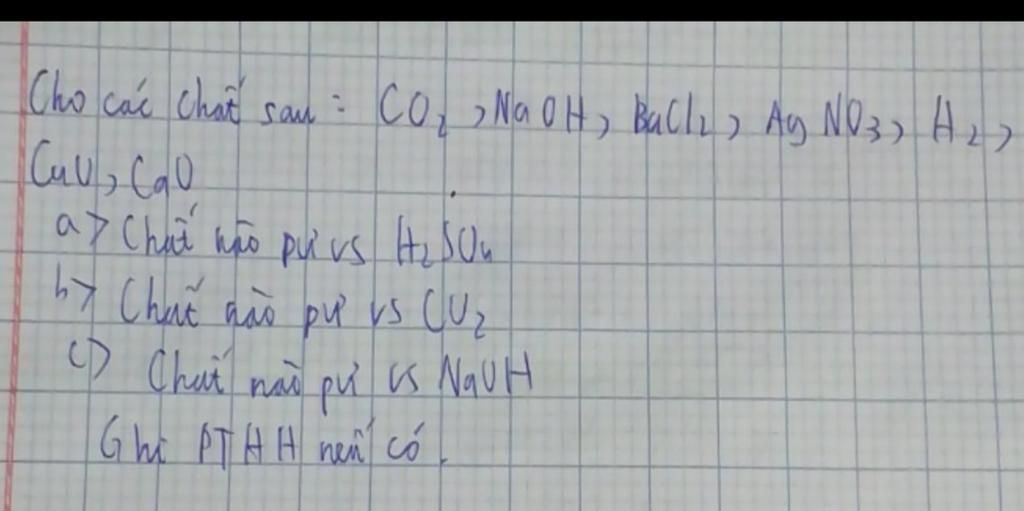 Cho các chất sau: CO2, NaOH, BaCl2, AgNO3, H2,
CuO, CaO
a> Chất nào pứ vs H2SO4
b> Chất nào pứ vs CO2
c> Chất nào pứ vs NaOH
Ghi PTHH nếu có.